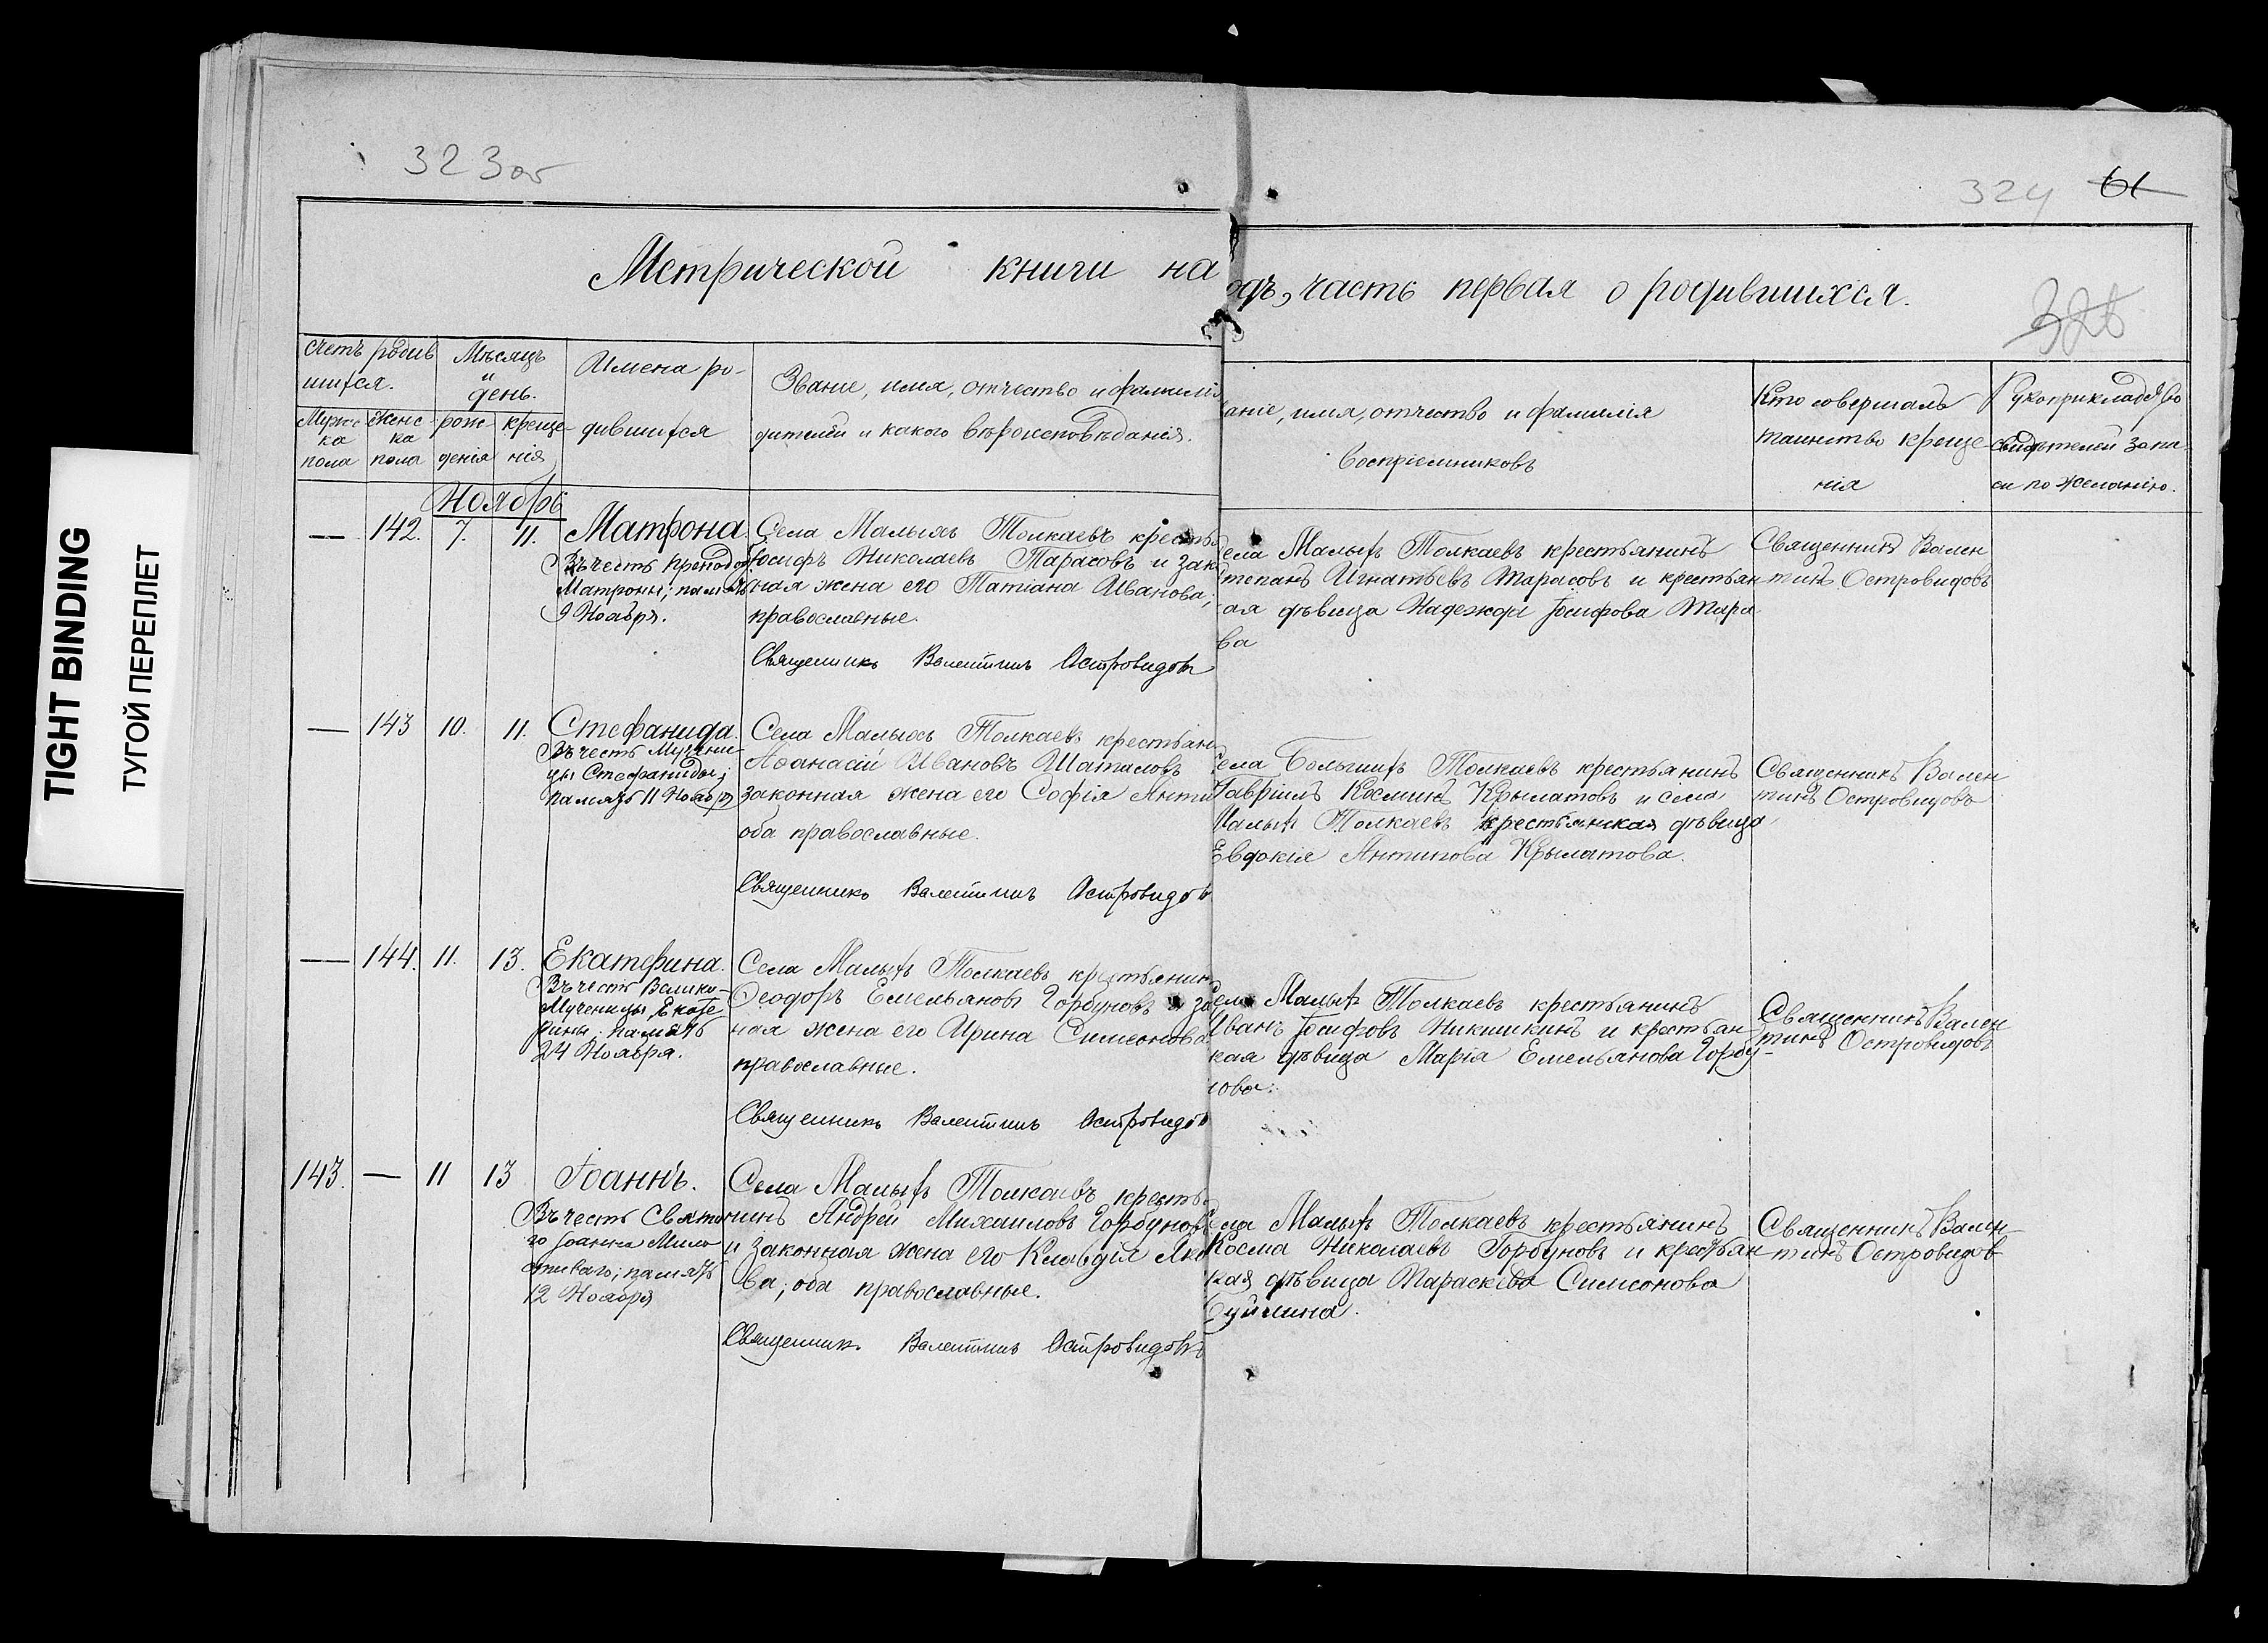 323об
324 61
326
TIGHT BINDING
ТУГОЙ ПЕРЕПЛЕТ
Метрической книги на
одъ, часть первая о родившихся.
Счетъ родив
шихся.
Мѣсяцъ
и
день.
Имена ро-
дившихся
Званіе, имя, отчество и фамилія
дителей и какого вѣроисповѣданія.
Мужс
ка
пола
Женс
ка
пола
рож
денія
креще-
нія
аніе, имя, отчество и фамилія
воспріемниковъ
Кто совершалъ
таинство креще-
нія
Рукоприкладство
свидѣтелей запи-
си по желанію.
Ноябрь
— 142. 7. 11. Матрона.
Въ честь Преподоб.
Матроны; память
9 Ноября.
Села Малыхъ Толкаевъ кресть
Іосифъ Николаевъ Тарасовъ и зак
ная жена его Татіана Иванова;
православные.
Священникъ Валентинъ Островидовъ
ела Малыхъ Толкаевъ крестьянинъ
Степанъ Игнатьевъ Тарасовъ и крестьян
ая дѣвица Надежда Іосифова Тара
ва
Священникъ Вален
тинъ Островидовъ
— 143 10. 11. Стефанида.
Въ честь Мучени-
цы Стефаниды;
память 11 Ноября
Села Малыхъ Толкаевъ крестьян
Аѳанасій Ивановъ Шаталовъ
законная жена его Софія Анти
оба православные.
Священникъ Валентинъ Островидов
Села Большихъ Толкаевъ крестьянинъ
Гавріилъ Косминъ Крылатовъ и села
Малыхъ Толкаевъ крестьянская дѣвица
Евдокія Антипова Крылатова.
Священникъ Вален
тинъ Островидовъ
— 144. 11. 13. Екатерина.
Въ честь Велико-
Мученицы Екате
рины память
24 Ноября.
Села Малыхъ Толкаевъ крестьянин
Ѳеодоръ Емельяновъ Горбуновъ и за
ная жена его Ирина Симеонова
православные.
Священникъ Валентинъ Островидов
ела Малыхъ Толкаевъ крестьянинъ
Иванъ Іосифовъ Никишкинъ и крестьян
кая дѣвица Марія Емельянова Горбу-
нова.
Священникъ Вален
тинъ Островидовъ
143. — 11 13 Іоаннъ.
Въ честь Свято
го Іоанна Мило
стиваго; память
12 Ноября
Села Малыхъ Толкаевъ кресть
нинъ Андрей Михаиловъ Горбуновъ
и законная жена его Клавдія Яко
ва; оба православные.
Священникъ Валентинъ Островидовъ
ела Малыхъ Толкаевъ крестьянинъ
Косма Николаевъ Горбуновъ и крестьян
кая дѣвица Параскева Симеонова
Священникъ Вален-
тинъ Островидов